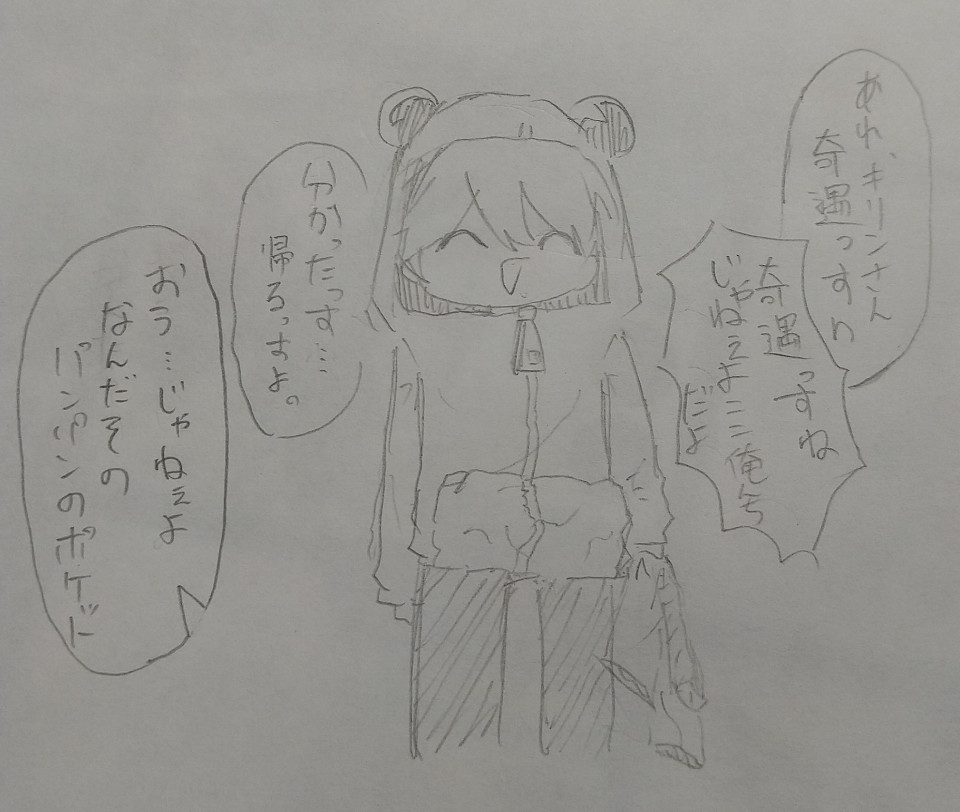 あれ、キリンさん
奇遇っすり
奇遇っすね
じゃねぇよここ俺んち
だよ
分かったっす…
帰るっすよ。
おう…じゃねぇよ
なんだその
パンパンのポケット